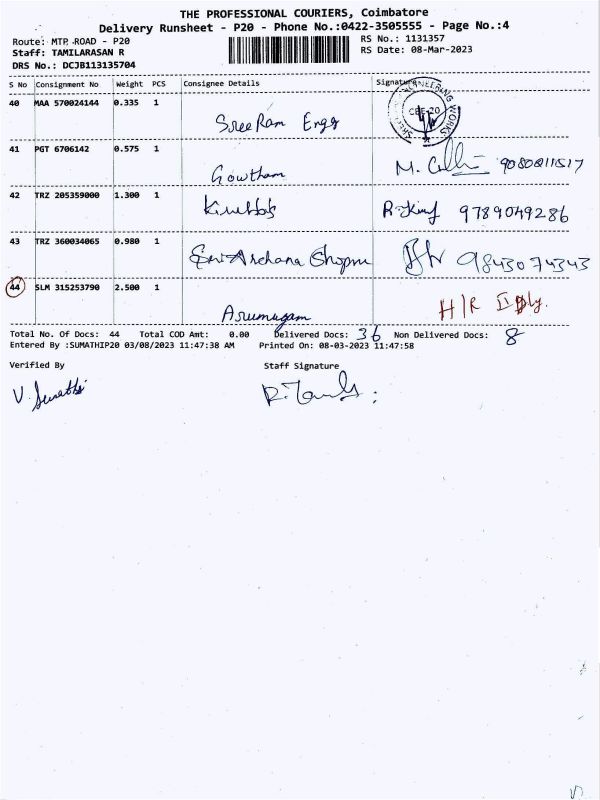 THE PROFESSIONAL COURIERS, Coimbatore
Delivery Runsheet - P20 - Phone No.:0422-3505555 - Page No.:4
Route: MTP ROAD - P20 RS No.: 1131357
Staff: TAMILARASAN R RS Date: 08-Mar-2023
DRS No.: DCJB113135704
S No Consignment No Weight PCS Consignee Details Signature
40 MAA 570024144 0.335 1
SreeRam Engg
ENGINEERING WORKS
CBE-20
41 PGT 6706142 0.575 1
Gowtham M. 
42 TRZ 205359000 1.300 1
9789049286
43 TRZ 360034065 0.980 1
Sri Archana 9843074343
44 SLM 315253790 2.500 1
Arumugam H/R
Total No. Of Docs: 44 Total COD Amt: 0.00 Delivered Docs: 36 Non Delivered Docs: 8
Entered By :SUMATHIP20 03/08/2023 11:47:38 AM Printed On: 08-03-2023 11:47:58
Verified By Staff Signature
V. Sumathi